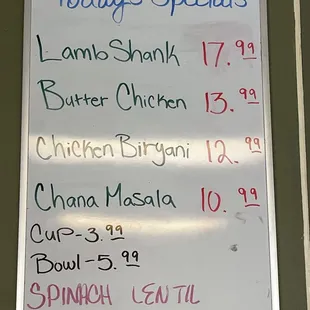 Today's Specials
Lamb Shank 17.99
Butter Chicken 13.99
Chicken Biryani 12.99
Chana Masala 10.99
Cup-3.99
Bowl-5.99
SPINACH LENTIL